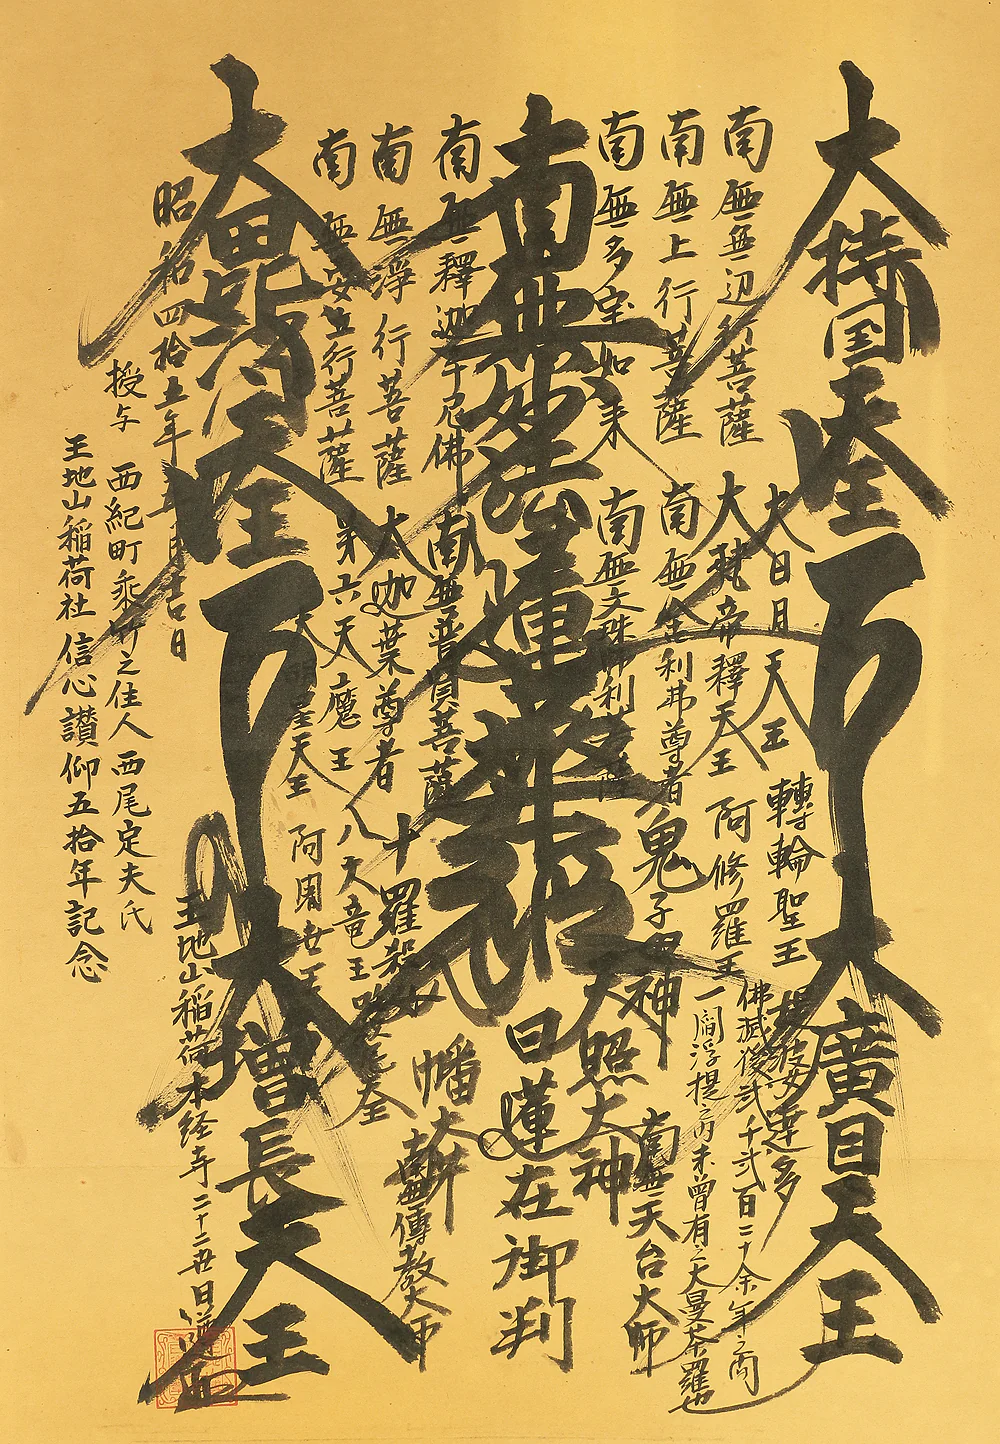 大持国天王
大廣目天王
大日月天王
轉輪聖王
提婆達多
南無無辺行菩薩
大梵帝釋天王
阿修羅王
佛滅後弐千弐百二十余年之間
一閻浮提之内未曾有之大曼荼羅也
南無上行菩薩
南無舎利弗尊者
鬼子母神
南無天台大師
南無多宝如来
南無文殊師利菩薩
天照大神
南無妙法蓮華経
日蓮在御判
南無釋迦牟尼佛
南無普賢菩薩
八幡大
南無傳教大師
南無浄行菩薩
大迦葉尊者
十羅殺女
南無安立行菩薩
第六天魔王
八大竜王
大明星天王
阿闍世王
大毘沙門天王
大増長天王
昭和四拾五年五月吉日
授与 西紀町乗竹之住人 西尾定夫氏
王地山稲荷社信心讃仰五拾年記念
王地山稲荷本経寺二十二世日